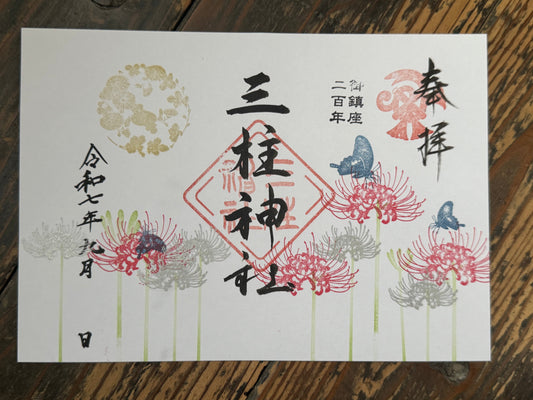 奉拝
御鎮座
二百年
三柱神社
令和七年九月 日